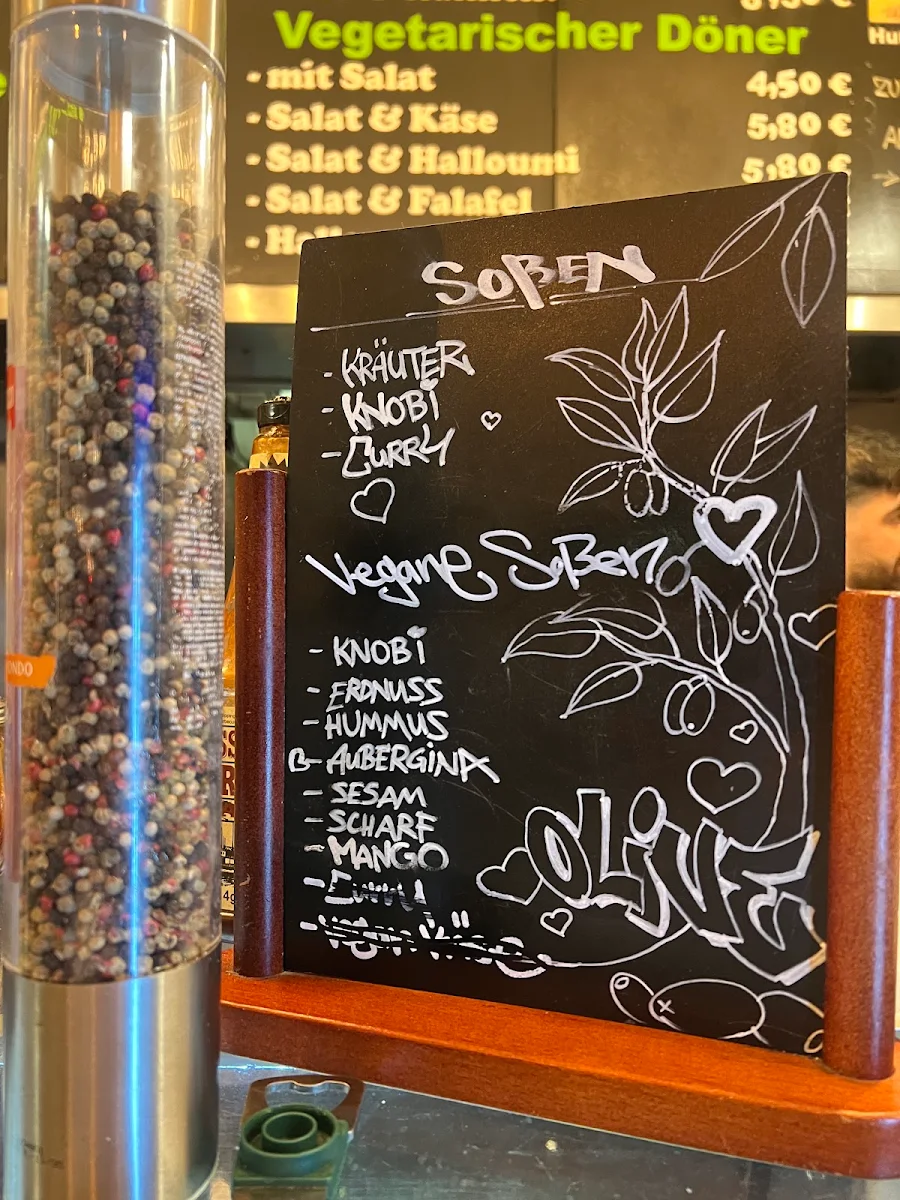 Vegetarischer Döner
- mit Salat 4,50 €
- Salat & Käse 5,80 €
- Salat & Halloumi 5,80 €
- Salat & Falafel
Soßen
- KRÄUTER
- KNOBi
- CURRY
Vegane Soßen
- KNOBi
- ERDNUSS
- HUMMUS
- AUBERGiNA
- SESAM
- SCHARF
- MANGO
OLiVE